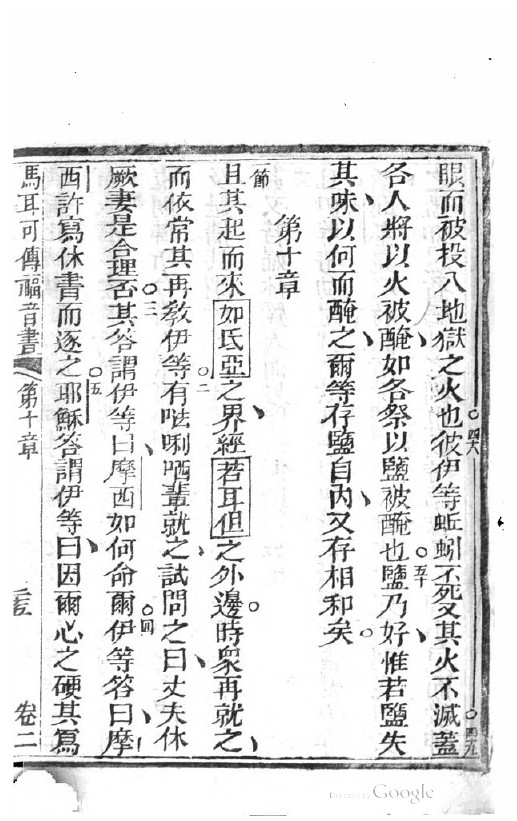 眼而被投入地獄之火也四八彼伊等蚯蚓不死又其火不滅四九蓋
各人將以火被醃如各祭以鹽被醃也五十鹽乃好惟若鹽失
其味以何而醃之爾等存鹽自內又存相和矣
第十章
節且其起而來如氐亞之界經若耳但之外邊時眾再就之
而依常其再教伊等二有𠵽唎哂輩就之試問之曰丈夫休
厥妻是合理否三其答謂伊等曰摩西如何命爾四伊等答曰摩
西許寫休書而逐之五耶穌答謂伊等曰因爾心之硬其爲
馬耳可傳福音書 第十章 卷二
Google